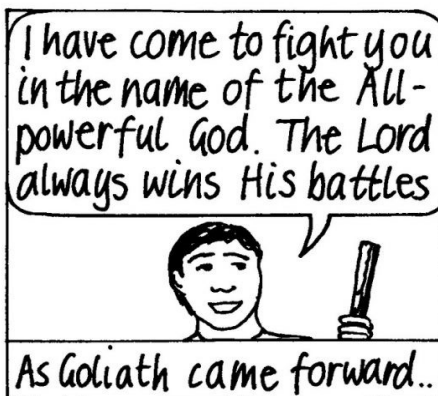 I have come to fight you
in the name of the All-
powerful God. The Lord
always wins His battles
As Goliath came forward..